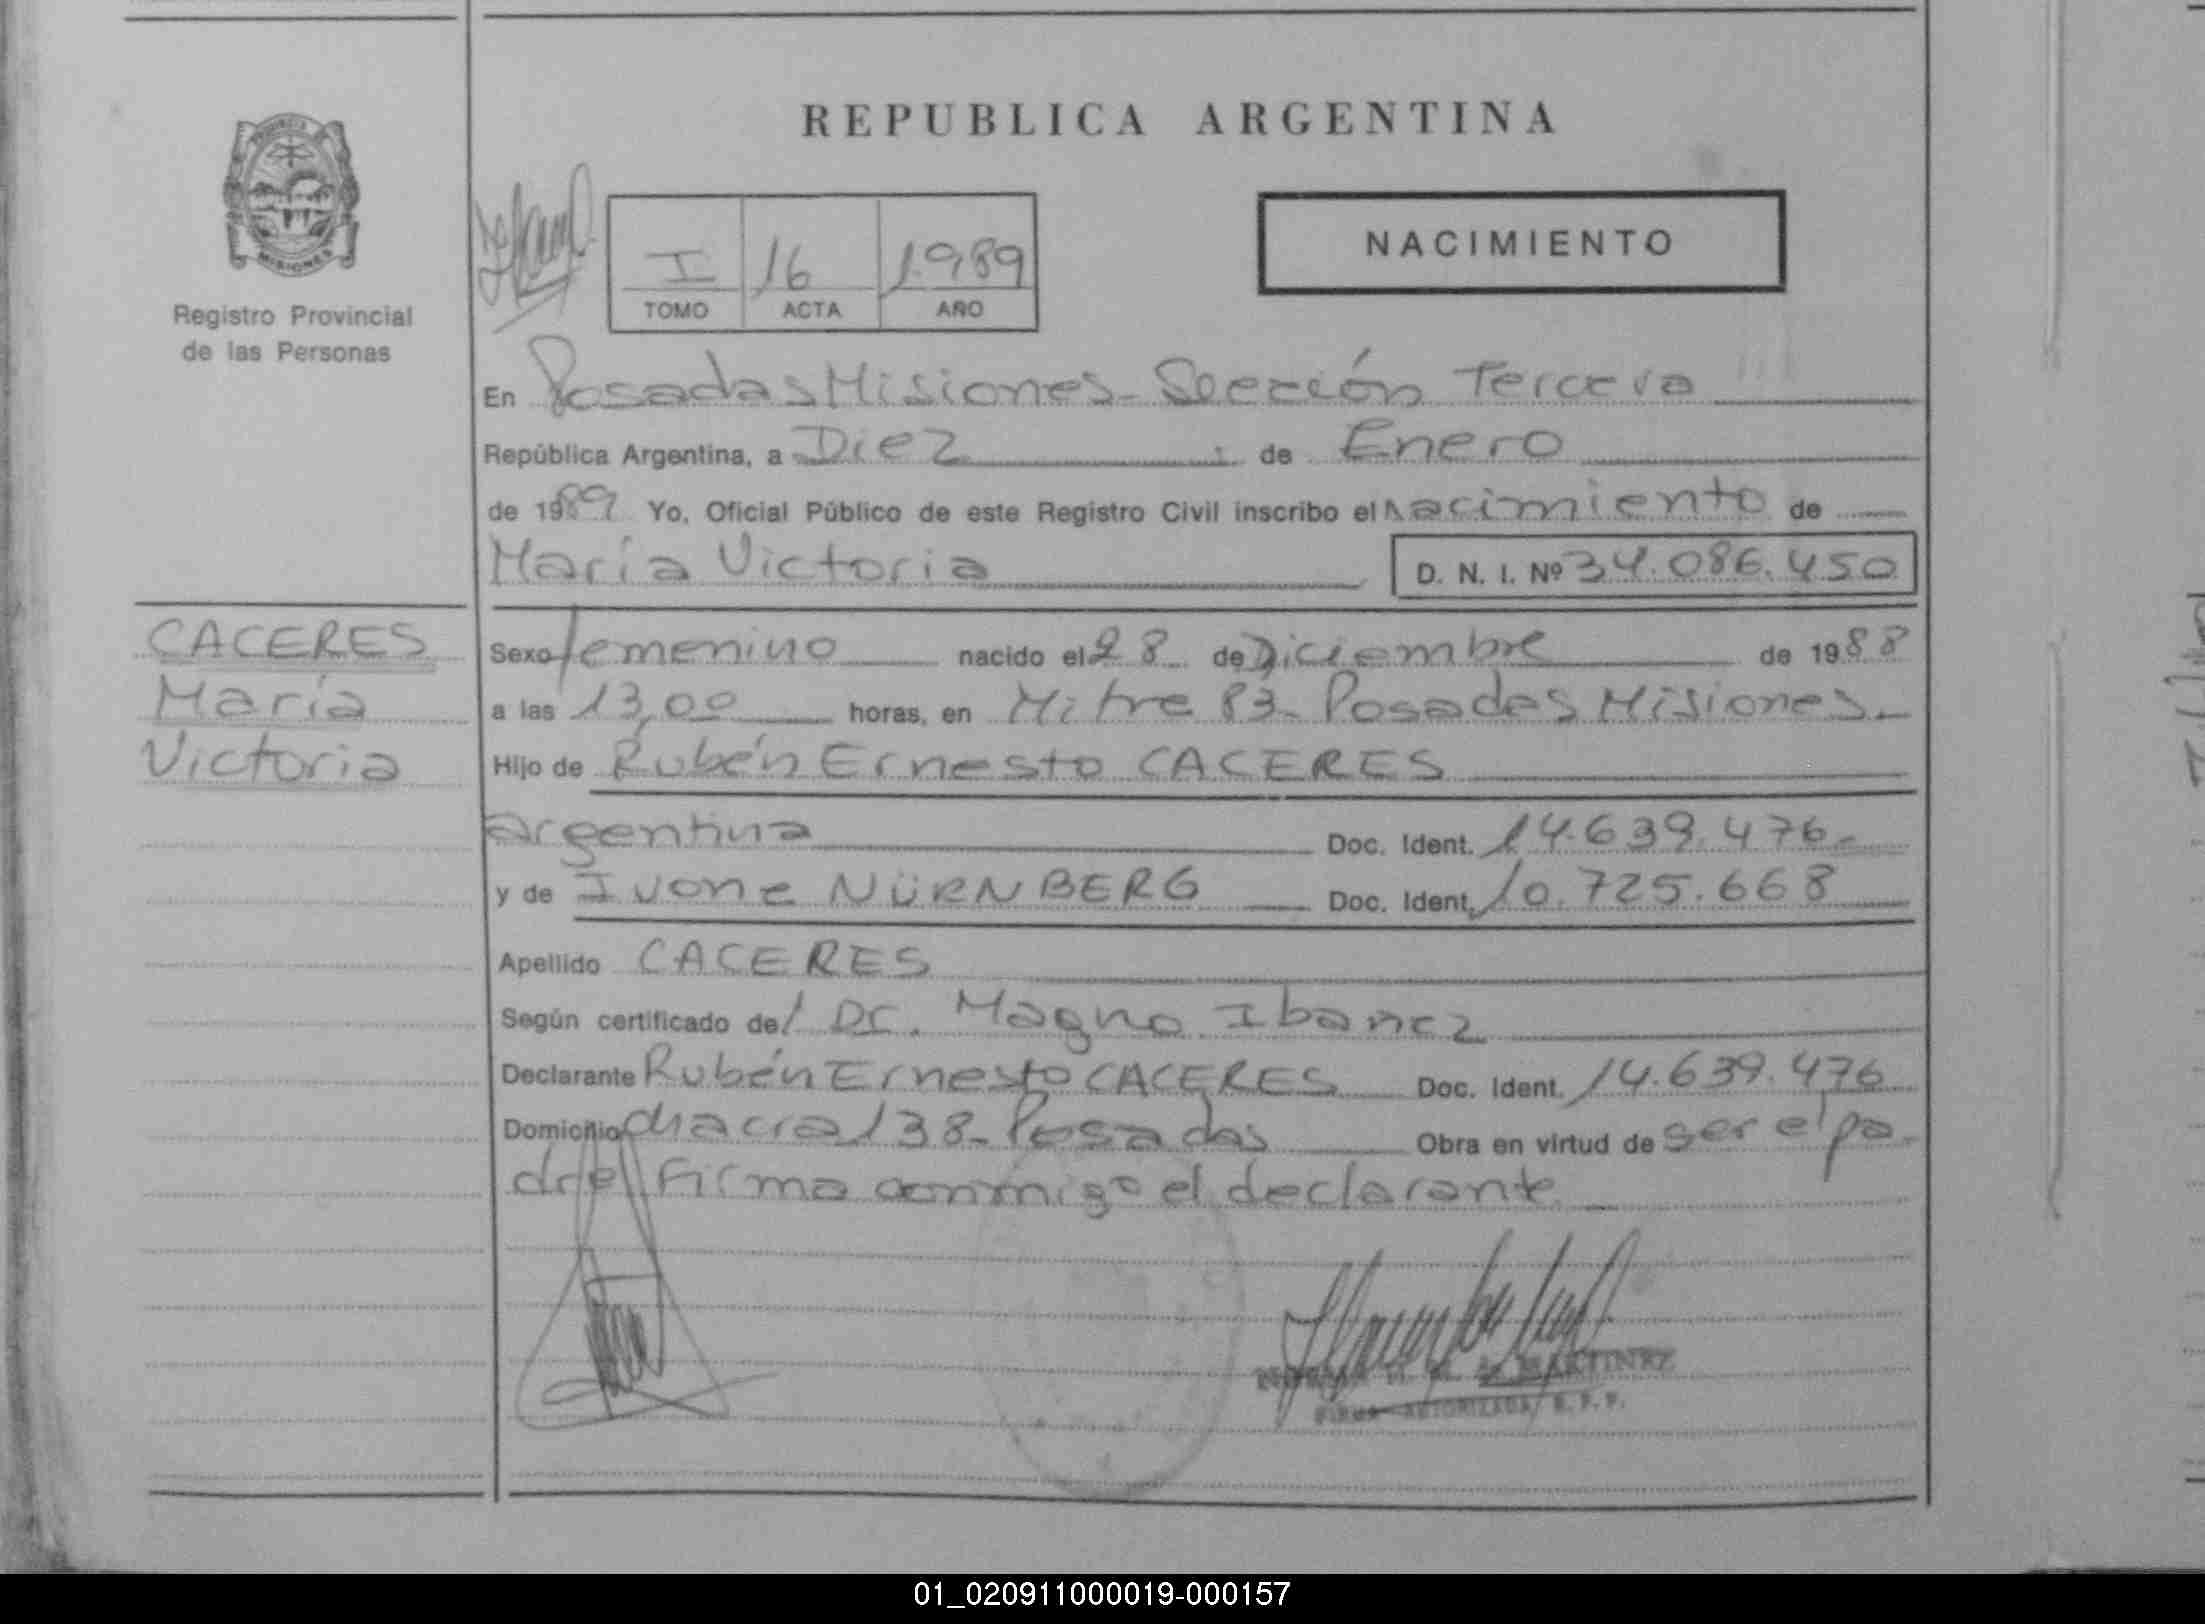 REPUBLICA ARGENTINA
PROVINCIA DE
MISIONES
Registro Provincial
de las Personas
I 16 1989
TOMO ACTA AÑO
NACIMIENTO
En Posadas Misiones - Sección Tercera
República Argentina, a Diez de Enero
de 1989 Yo, Oficial Público de este Registro Civil inscribo el Nacimiento de
María Victoria D. N. I. Nº 34.086.450
CACERES
María
Victoria
Sexo femenino nacido el 28 de Diciembre de 1988
a las 13,00 horas, en Mitre 83 - Posadas Misiones -
Hijo de Rubén Ernesto CACERES
argentina Doc. Ident. 14.639.476 -
y de Ivone NÜRNBERG Doc. Ident. 10.725.668
Apellido CACERES
Según certificado del Dr. Magno Ibanez
Declarante Rubén Ernesto CACERES Doc. Ident. 14.639.476
Domicilio chacra 138 - Posadas Obra en virtud de ser el pa-
dre// Firma conmigo el declarante
MARTINEZ
FIRMA AUTORIZADA R. P. P.
01_020911000019-000157